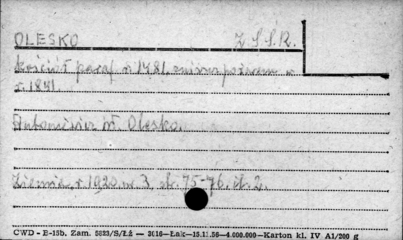 OLESKO Z.S.S.R.
kościół paraf. r. 1481. zniszcz. pożarem w
r. 1841.
Antoniewicz W. Olesko.
Ziemia, r. 1920. nr. 3, st. 75-76, il. 2.
CWD - E-15b. Zam. 5823/S/Łż — 2016—Łak—15.11.56—4.000.000—Karton kl. IV A1/200 g